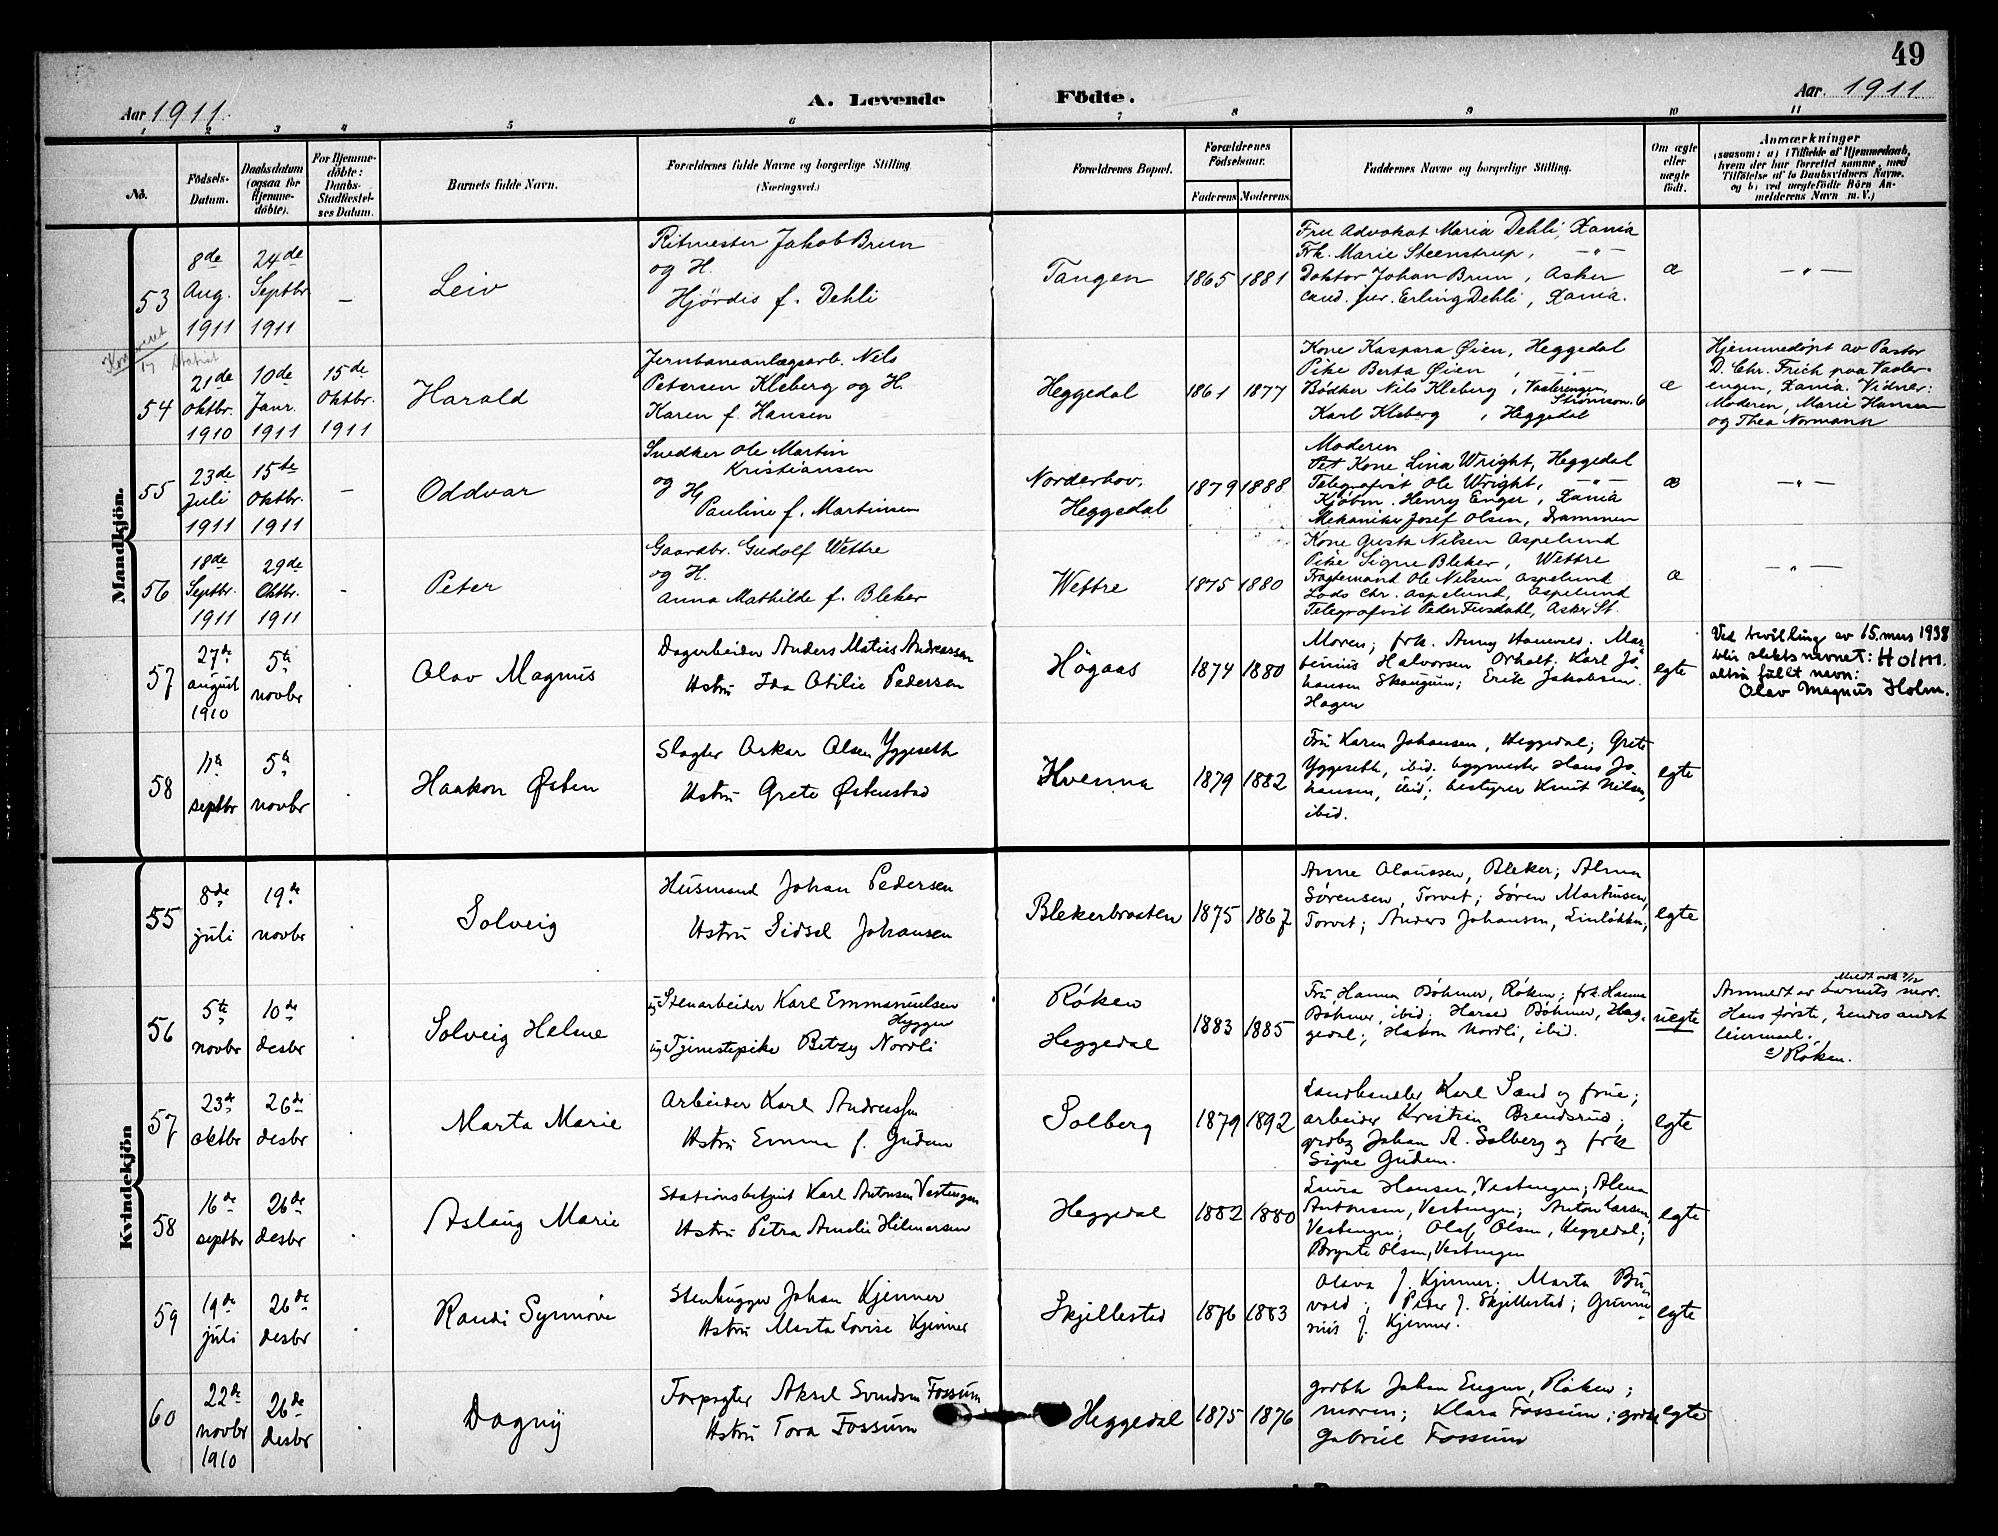 49
Aar 1911.
A. Levende Födte.
Aar. 1911
1 2 3 4 5 6 7 8 9 10 11
No.
Födsels-Datum.
Daabsdatum (ogsaa for Hjemme-döbte).
For Hjemme-döbte: Daabs-Stadfæstel-ses Datum.
Barnets fulde Navn.
Forældrenes fulde Navne og borgerlige Stilling. (Næringsvei.)
Forældrenes Bopæl.
Forældrenes Födselsaar.
Faderens Moderens.
Faddernes Navne og borgerlige Stilling.
Om ægte eller uægte födt.
Anmærkninger
(saasom: a) i Tilfælde af Hjemmedaab,
hvem der har forrettet samme, med
Tilföielse af to Daabsvidners Navne.
og b) ved uægtefödte Börn An-
melderens Navn m. V.)
Mandkjön.
53
8de Aug. 1911
24de Septbr 1911
–
Leiv
Ritmester Jakob Brun
og H.
Hjördis f. Dehli
Tangen
1865 1881
Fru Advokat Maria Dehli, Xania
Frk. Marie Steenstrup, —"—
Doktor Johan Brun, Asker
cand. jur. Erling Dehli, Xania.
æ
—"—
54
21de Oktbr. 1910
10de Janr. 1911
15de Oktbr. 1911
Harald
Jernbaneanlægsarb. Nels
Petersen Kleberg og H.
Karen f. Hansen
Heggedal
1861 1877
Kone Kaspara Øien, Heggedal
Pike Berta Øien, —"—
Bødker Nils Kleberg, Vaalerengen,
Strømsv. 6
Karl Kleberg, Heggedal
æ
Hjemmedöpt av Pastor
D. Chr. Frich paa Vaaler-
engen, Xania. Vidner:
Moderen, Marie Hansen
og Thea Normann
55
23de Juli 1911
15te Oktbr. 1911
–
Oddvar
Snedker Ole Martin
Kristiansen
og H.
Pauline f. Martinsen
Norderhov.
Heggedal
1879 1888
Moderen
Kone Lina Wright, Heggedal
Telegrafist Ole Wright, —"—
Kjöbm. Henry Enger, Xania
Mekaniker Josef Olsen, Drammen
æ
—"—
56
18de Septbr. 1911
29de Oktbr. 1911
–
Peter
Gaardbr. Gudolf Wettre
og H.
Anna Mathilde f. Bleker
Wettre
1875 1880
Kone Gusta Nilsen Aspelund
Pike Signe Bleker, Wettre
Fragtemand Ole Nilsen Aspelund
Lods Chr. Aspelund, Aspelund
Telegrafist Peder Fusdahl, Asker St.
æ
—"—
57
27de august 1910
5te novbr
Olav Magnus
Dagarbeider Anders Matias Andreassen
Hstru Ida Otilie Pedersen
Högaas
1874 1880
Moren; frk. Anny Hanevold. Mar-
tinius Halvorsen Orholt. Karl Jo-
hansen Skaugum; Erik Jakobsen
Hagen
egte
Ved bevilling av 15. mars 1938
blir slektsnavnet: Holm.
altså fullt navn:
Olav Magnus Holm.
58
11te septbr
5te novbr
Haakon Østen
Slagter Oskar Olsen Yggeseth
Hstru Grete Østenstad
Hvenna
1879 1882
Fru Karen Johansen, Heggedal; Grete
Yggeseth, ibid. byggmester Hans Jo-
hansen, ibid; bestyrer Knut Nilsen,
ibid.
egte
Kvindekjön
55
8de juli
19de novbr
Solveig
Husmand Johan Pedersen
Hstru Sidsel Johansen
Blekerbraaten
1875 1867
Anne Olaussen, Bleker; Alma
Sørensen, Torvet; Søren Martinsen,
Torvet; Anders Johansen, Einløkken,
egte
56
5te novbr
10de desbr
Solveig Helene
Stenarbeider Karl Emmanuelsen
Hyggen
Tjenestepike Betzy Nordli
Røken
Heggedal
1883 1885
Fru Hanna Böhmer, Røken; frk. Hanna
Böhmer, ibid; Harald Böhmer, Heg-
gedal; Hakon Nordli, ibid.
uegte
Anmeldt av barnets mor.
Hans første, hendes andet
leiermaal.
Røken.
57
23de oktbr
26de desbr
Marta Marie
Arbeider Karl Andreassen
Hstru Emma f. Gudem
Solberg
1879 1892
Landhandler Karl Sand og frue;
arbeider Kristian Brendsrud;
grdbr Johan A. Solberg og frk
Signe Gudem.
egte
58
16de septbr
26de desbr
Aslaug Marie
Stationsbetjent Karl Antonsen Vestengen
Hstru Petra Amalie Hilmarsen
Heggedal
1882 1880
Laura Hansen, Vestengen; Alma
Antonsen, Vestengen; Anton Larsen,
Vestengen; Olaf Olsen, Heggedal;
Brynte Olsen, Vestengen
egte
59
19de juli
26de desbr
Randi Synnøve
Stenhugger Johan Kjenner
Hstru Marta Lovise Kjenner
Skjellestad
1876 1883
Olava J. Kjenner; Marta Bu-
vold; Peder J. Skjellestad; Gunne-
rius J. Kjenner.
egte
60
22de novbr 1910
26de desbr
Dagny
Forpagter Aksel Svendsen Fossum
Hstru Tora Fossum
Heggedal
1875 1876
grdbr Johan Enger, Røken;
moren; Klara Fossum; grdbr
Gabriel Fossum
egte